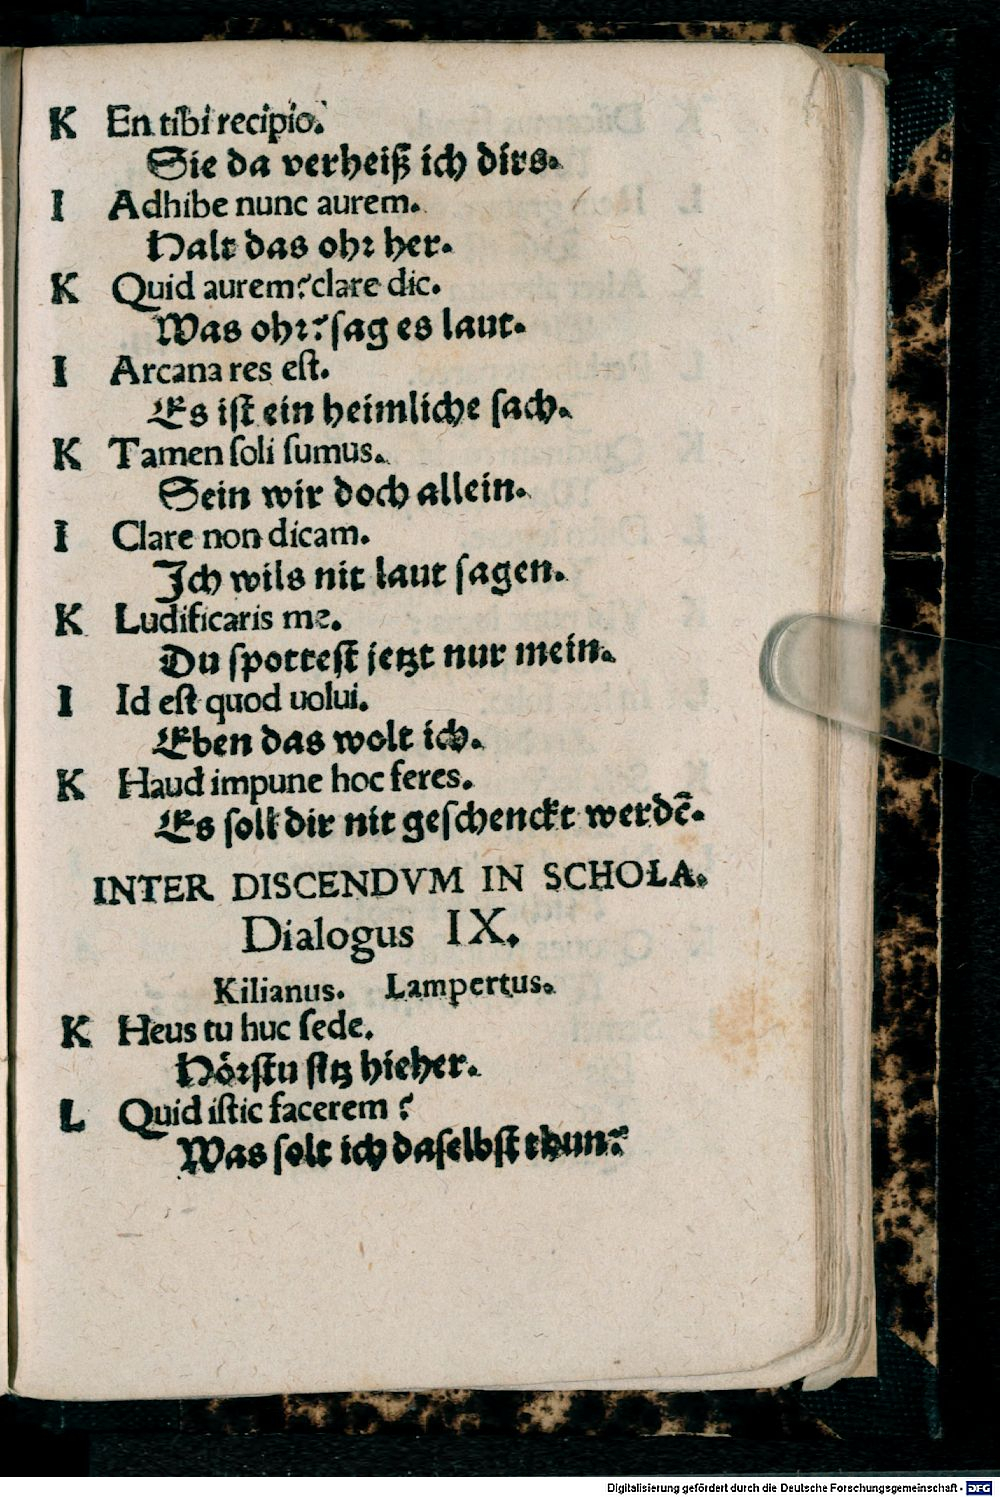 K En tibi recipio.
Sie da verheiß ich dirs.
I Adhibe nunc aurem.
Halt das ohr her.
K Quid aurem? clare dic.
Was ohr? sag es laut.
I Arcana res est.
Es ist ein heimliche sach.
K Tamen soli sumus.
Sein wir doch allein.
I Clare non dicam.
Ich wils nit laut sagen.
K Ludificaris me.
Du spottest jetzt nur mein.
I Id est quod uolui.
Eben das wolt ich.
K Haud impune hoc feres.
Es soll dir nit geschenckt werdē.
INTER DISCENDVM IN SCHOLA.
Dialogus IX.
Kilianus. Lampertus.
K Heus tu huc sede.
Hörstu sitz hieher.
L Quid istic facerem?
Was solt ich daselbst thun?
Digitalisierung gefördert durch die Deutsche Forschungsgemeinschaft - DFG